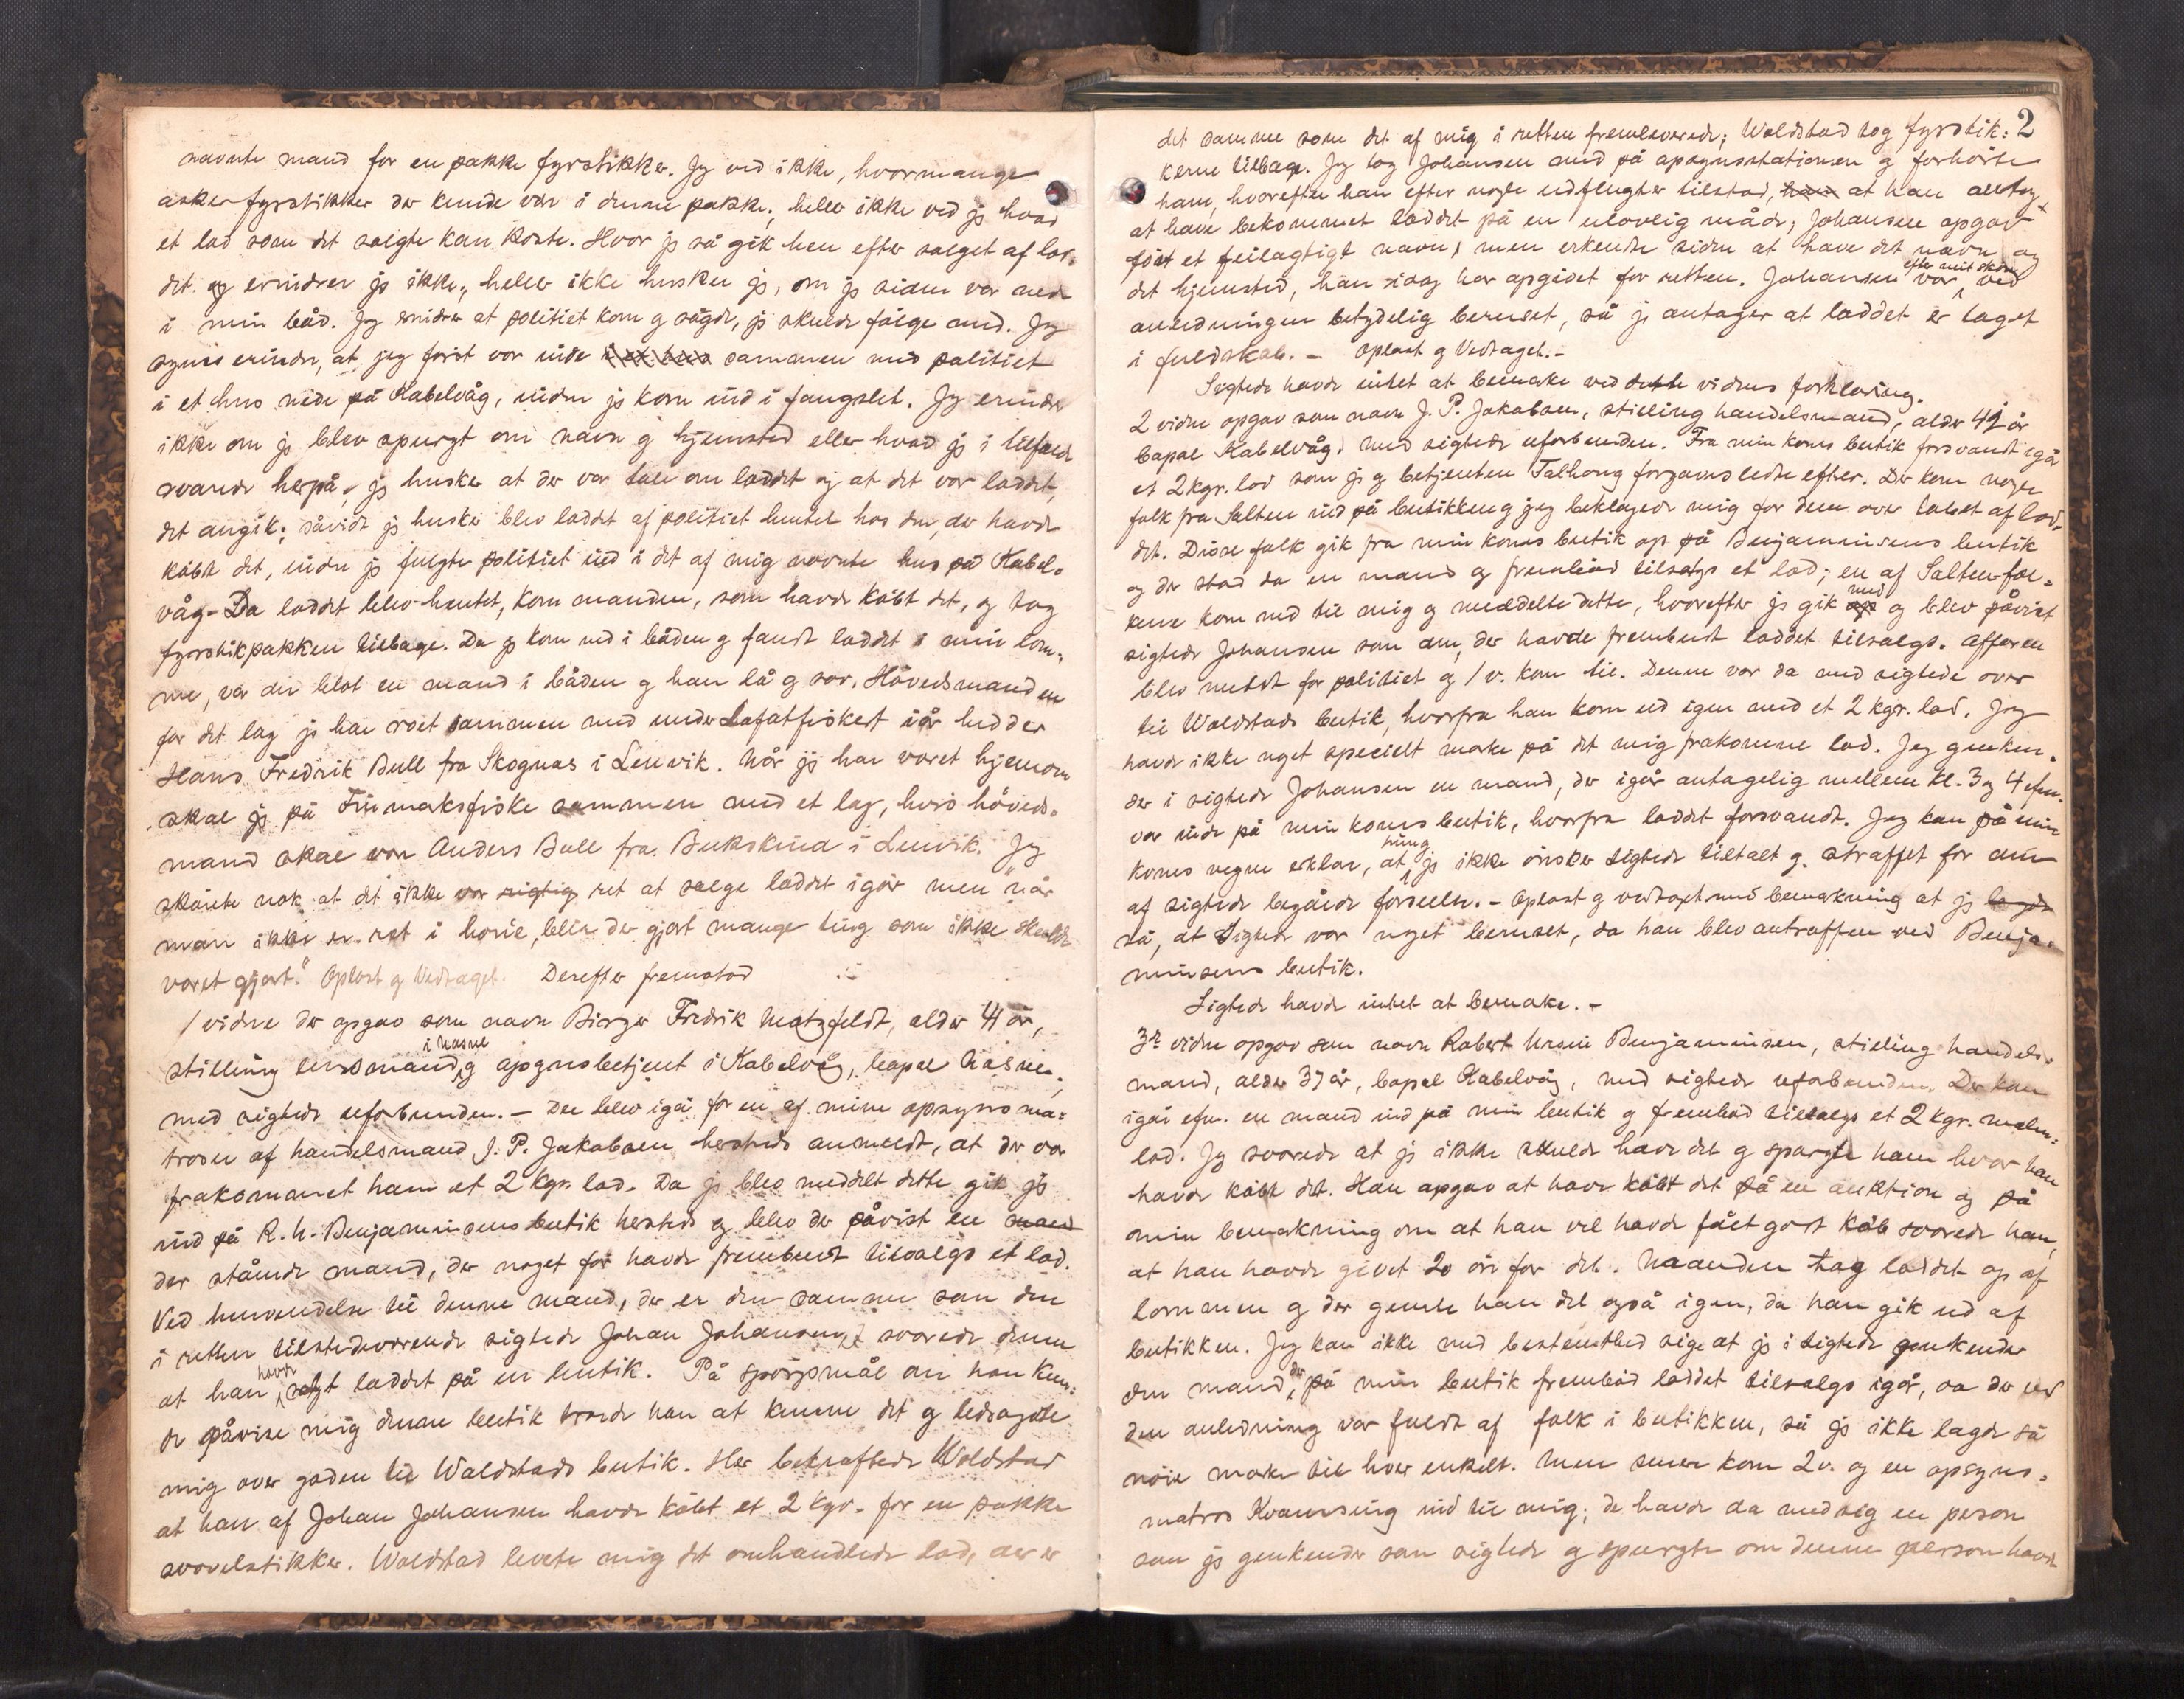 nævnte mand for en pakke fyrstikker. Jeg ved ikke, hvormange
æsker fyrstikker der kunde være i denne pakke; heller ikke ved jeg hvad
et lod som det solgte kan koste. Hvor jeg så gik hen efter salget af lod-
det erindrer jeg ikke, heller ikke husker jeg, om jeg siden var nede
i min båd. Jeg erindrer at politiet kom og sagde, jeg skulde følge med. Jeg
synes erindre, at jeg først var inde i et hus sammen med politiet
i et hus nede på Kabelvåg, inden jeg kom ind i fængslet. Jeg erindrer
ikke om jeg blev spurgt om navn og hjemsted eller hvad jeg i tilfælde
svarede herpå, jeg husker at der var tale om loddet og at det var loddet,
det angik; såvidt jeg husker blev loddet af politiet hentet hos den, der havde
købt det, inden jeg fulgte politiet ind i det af mig nævnte hus på Kabel-
våg. Da loddet blev hentet, kom manden, som havde købt det, og tog
fyrstikpakken tilbage. Da jeg kom ned i båden og fandt loddet i min lom-
me, var der blot en mand i båden og han lå og sov. Høvedsmanden
for det lag jeg har roet sammen med under Lofotfisket iår hedder
Hans Fredrik Bull fra Skognæs i Lenvik. Når jeg har været hjemom
skal jeg på Finmarksfiske sammen med et lag, hvis høveds-
mand skal være Anders Bull fra Bukskind i Lenvik. Jeg
skønte nok at det ikke var rigtig ret at sælge loddet igår men "når
man ikke er ret i hovie, bliver der gjort mange ting som ikke skulde
været gjort." Oplæst og Vedtaget. Derefter fremstod
1 vidne der opgav som navn Birger Fredrik Motzfeldt, alder 41 år,
stilling lensmand i Hasvel og opsynsbetjent i Kabelvåg, bopæl
med sigtede uforbunden. – Der blev igår for en af mine opsynsma-
troser af handelsmand J. P. Jakobsen hersteds anmeldt, at der var
frakommet ham et 2 kgr. lod. Da jeg blev meddelt dette gik jeg
ind på R. U. Benjaminsens butik hersteds og blev der påvist en mand
der stående mand, der noget før havde frembudt tilsalgs et lod.
Ved henvendelse til denne mand, der er den samme som den
i retten tilstedeværende sigtede Johan Johansen, svarede denne
at han havde solgt loddet på en butik. På spørgsmål om han kun-
de påvise mig denne butik troede han at kunne det og ledsagede
mig over gaden til Woldstads butik. Her bekræftede Woldstad
at han af Johan Johansen havde købt et 2 kgr. for en pakke
svovelstikker. Woldstad leverte mig det omhandlede lod, der er
2
det samme som det af mig i retten fremleverede; Woldstad tog fyrstik-
kerne tilbage. Jeg tog Johansen med på opsynsstationen og forhørte
ham, hvorefter han efter nogle udflugter tilstod, han at han
at have bekommet loddet på en ulovlig måde; Johansen opgav
først et feilagtigt navn, men erkendte siden at have det navn og
det hjemsted, han idag har opgivet for retten. Johansen var efter mit skøn ved
anledningen betydelig beruset, så jeg antager at loddet er taget
i fuldskab. – Oplæst og Vedtaget. –
Sigtede havde intet at bemærke ved dette vidnes forklaring.
2 vidne opgav som navn J. P. Jakobsen, stilling handelsmand, alder 41 år
bopæl Kabelvåg, med sigtede uforbunden. Fra min kones butik forsvandt igår
et 2 kgr. lod som jeg og betjenten forgjæves ledte efter. Der kom nogle
folk fra Salten ind på butikken og jeg beklagede mig for dem over tabet af lod-
det. Disse folk gik fra min kones butik op på Benjaminsens butik
og der stod da en mand og frembød tilsalgs et lod; en af Salten-fol-
kene kom ned til mig og meddelte dette, hvorefter jeg gik op med og blev påvist
sigtede Johansen som den, der havde frembudt loddet tilsalgs. Affæren
blev meldt for politiet og 1 v. kom til. Denne var da med sigtede over
til Woldstads butik, hvorfra han kom ud igen med et 2 kgr. lod. Jeg
havde ikke noget specielt mærke på det mig frakomne lod. Jeg genken-
der i sigtede Johansen en mand, der igår antagelig mellem kl. 3 og 4 efm.
var inde på min kones butik, hvorfra loddet forsvandt. Jeg kan på min
kones vegne erklære, at hun og jeg ikke ønsker sigtede tiltalt og straffet for den
af sigtede begåede forseelse. – Oplæst og vedtaget med bemærkning at jeg
så, at Sigtede var noget beruset, da han blev antruffen ved Benja-
minsens butik.
Sigtede havde intet at bemærke. –
3de vidne opgav som navn Robert Ursin Benjaminsen, stilling handels-
mand, alder 37 år, bopæl Kabelvåg, med sigtede uforbunden. Der kom
igår efm. en mand ind på min butik og frembød tilsalgs et 2 kgr. malm-
lod. Jeg svarede at jeg ikke skulde have det og spurgte ham hvor han
havde købt det. Han opgav at have købt det på en auktion og på
min bemærkning om at han vel havde fået godt køb svarede han,
at han havde givet 20 øre for det. Manden tog loddet op af
lommen og der gemte han det også igen, da han gik ud af
butikken. Jeg kan ikke med bestemthed sige at jeg i sigtede genkender
den mand, der på min butik frembød loddet tilsalgs igår, da der ved
den anledning var fuldt af folk i butikken, så jeg ikke lagde så
nøie mærke til hver enkelt. Men senere kom 2 v. og en opsyns-
matros ind til mig; de havde da med sig en person
som jeg genkender som sigtede og spurgte om denne person havde